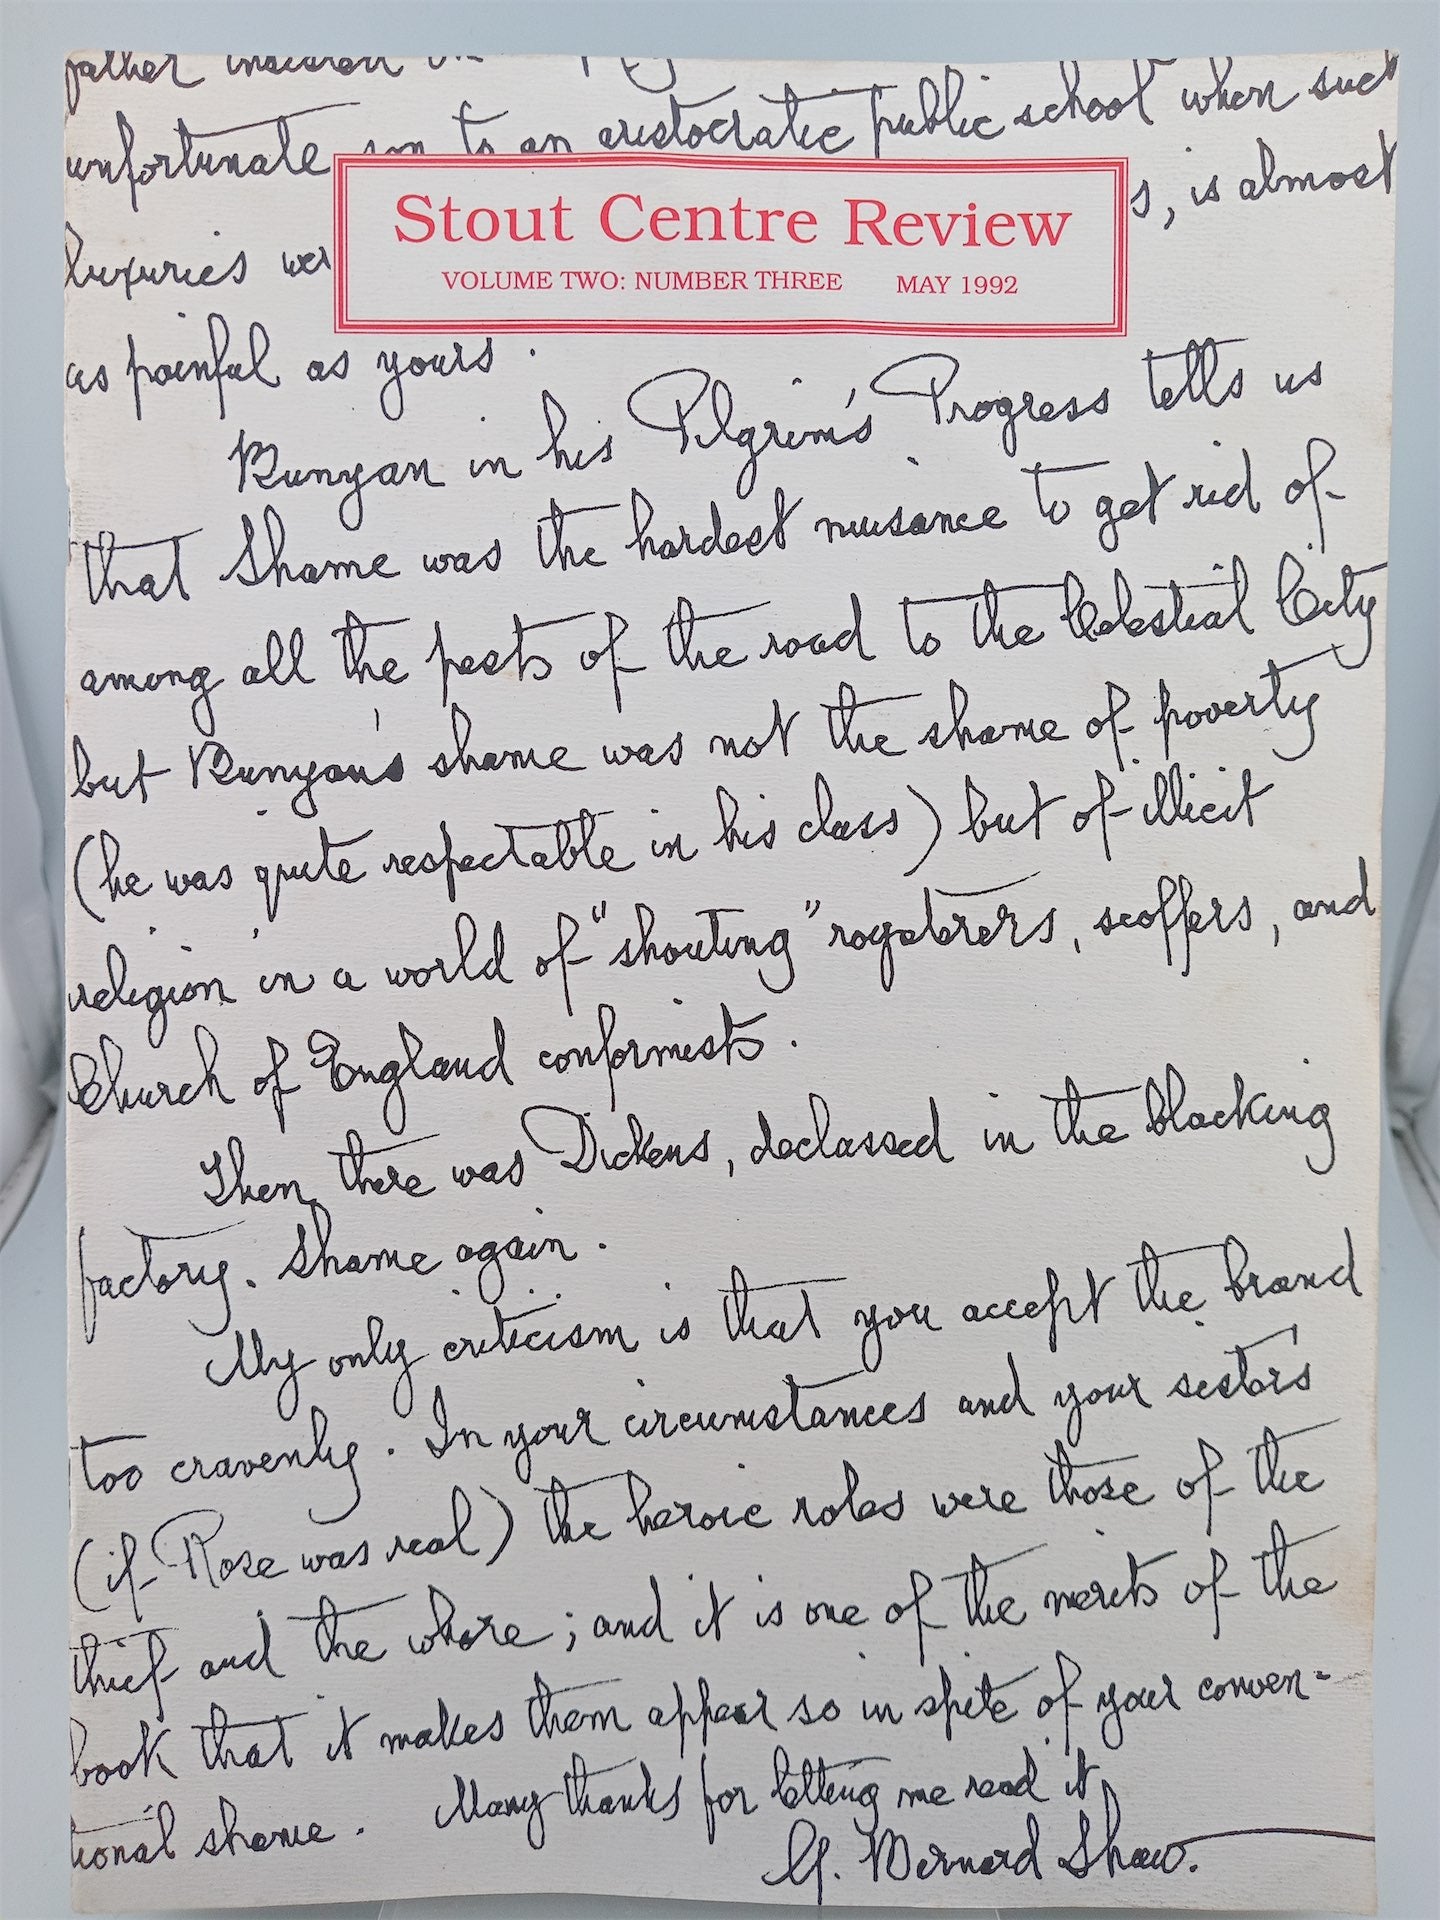 father
unfortunate son to an aristocratic public school when such
Stout Centre Review
s, is almost
luxuries wer
VOLUME TWO: NUMBER THREE MAY 1992
as painful as yours.
Bunyan in his Pilgrim's Progress tells us
that Shame was the hardest nuisance to get rid of
among all the pests of the road to the Celestial City
but Bunyan's shame was not the shame of poverty
(he was quite respectable in his class) but of illicit
religion in a world of "shouting" roysterers, scoffers, and
Church of England conformists.
Then there was Dickens, declassed in the blacking
factory. Shame again.
My only criticism is that you accept the brand
too cravenly. In your circumstances and your sister's
(if Rose was real) the heroic roles were those of the
thief and the whore; and it is one of the merits of the
book that it makes them appear so in spite of your conven=
tional shame. Many thanks for letting me read it
G. Bernard Shaw.